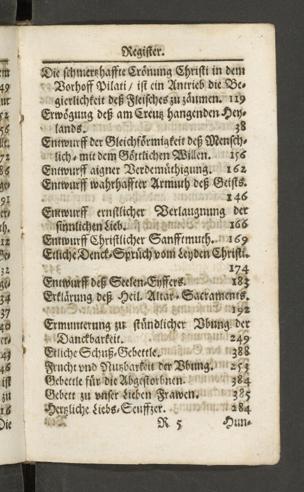 Register.
Die schmertzhaffte Crönung Christi in dem
Vorhoff Pilati / ist ein Antrieb die Be-
gierlichkeit deß Fleisches zu zäumen. 119
Erwögung deß am Creutz hangenden Hey-
lands. 38
Entwurff der Gleichförmigkeit deß Mensch-
lich- mit dem Göttlichen Willen. 156
Entwurff aigner Verdemüthigung. 162
Entwurff wahrhaffter Armuth deß Geists.
146
Entwurff ernstlicher Verlaugnung der
sinnlichen Lieb. 166
Entwurff Christlicher Sanfftmuth. 169
Etliche Denck-Sprüch vom Leyden Christi.
174
Entwurff deß Seelen-Eyffers. 183
Erklärung deß Heil. Altar-Sacraments.
192
Ermunterung zu stündlicher Vbung der
Danckbarkeit. 249
Etliche Schuß-Gebettle. 388
Frucht vnd Nutzbarkeit der Vbung. 253
Gebettle für die Abgestorbnen. 384
Gebett zu vnser Lieben Frawen. 385
Hertzliche Liebs-Seuffzer. 284
R 5 Hun-